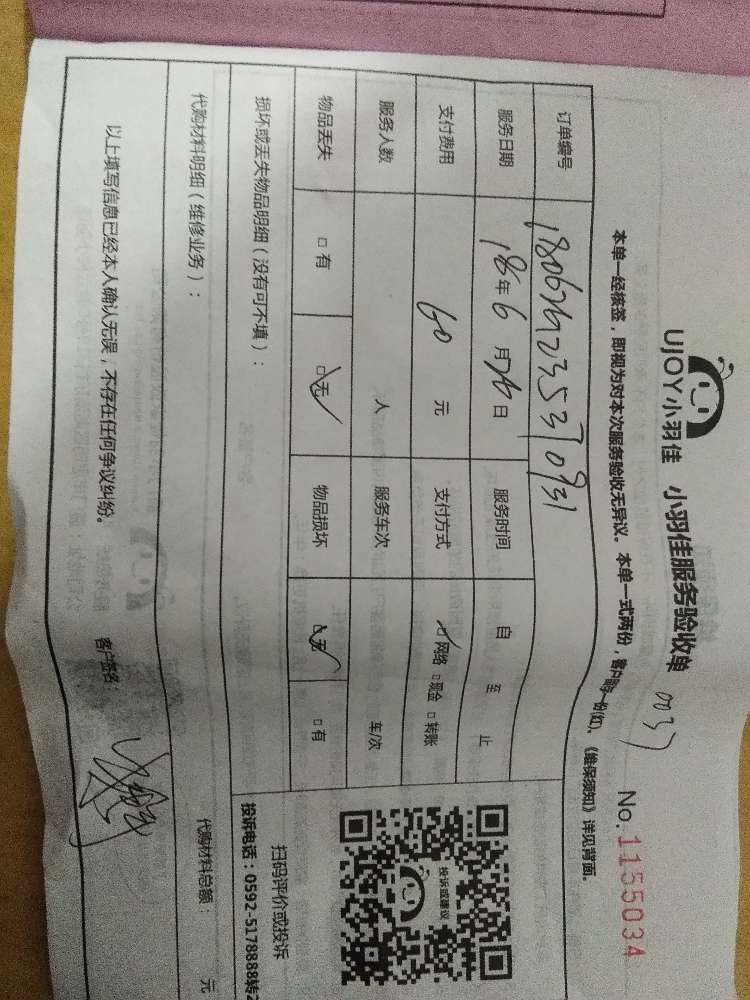 UJOY小羽佳 小羽佳服务验收单 0037 No.1155034
本单一经核签，即视为对本次服务验收无异议。本单一式两份，客户留存一份(红)，《维保须知》详见背面。
订单编号
服务日期 18年6月26日 服务时间 自 至 止
支付费用 60元 支付方式 网络 □现金 □转账
服务人数 人 服务车次 车/次
物品丢失 □有 □无 物品损坏 □无 □有
损坏或丢失物品明细（没有可不填）：
代购材料明细（维修业务）： 代购材料总额： 元
以上填写信息已经本人确认无误，不存在任何争议纠纷。 客户签名：
投诉或建议
扫码评价或投诉
投诉电话：0592-5178888转2